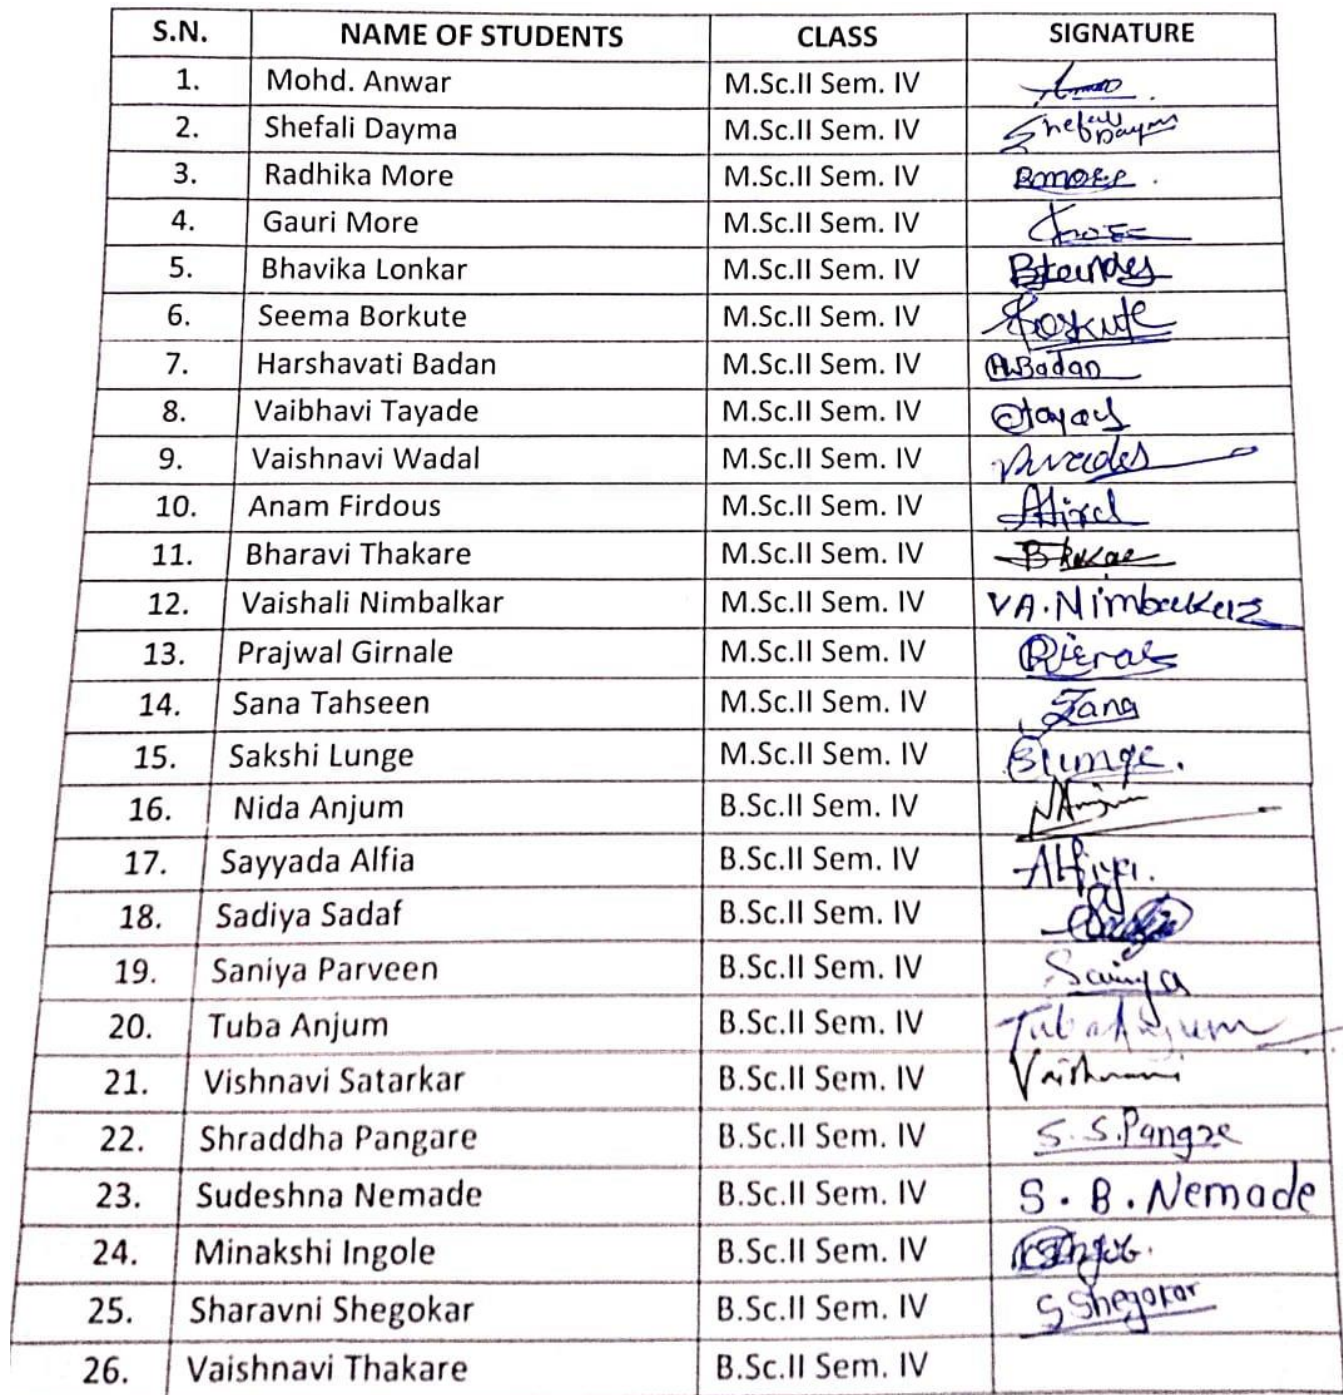 S.N. NAME OF STUDENTS CLASS SIGNATURE
1. Mohd. Anwar M.Sc.II Sem. IV
2. Shefali Dayma M.Sc.II Sem. IV Shefali Dayma
3. Radhika More M.Sc.II Sem. IV
4. Gauri More M.Sc.II Sem. IV
5. Bhavika Lonkar M.Sc.II Sem. IV
6. Seema Borkute M.Sc.II Sem. IV
7. Harshavati Badan M.Sc.II Sem. IV
8. Vaibhavi Tayade M.Sc.II Sem. IV
9. Vaishnavi Wadal M.Sc.II Sem. IV
10. Anam Firdous M.Sc.II Sem. IV
11. Bharavi Thakare M.Sc.II Sem. IV
12. Vaishali Nimbalkar M.Sc.II Sem. IV
13. Prajwal Girnale M.Sc.II Sem. IV
14. Sana Tahseen M.Sc.II Sem. IV
15. Sakshi Lunge M.Sc.II Sem. IV
16. Nida Anjum B.Sc.II Sem. IV
17. Sayyada Alfia B.Sc.II Sem. IV
18. Sadiya Sadaf B.Sc.II Sem. IV
19. Saniya Parveen B.Sc.II Sem. IV
20. Tuba Anjum B.Sc.II Sem. IV Tuba Anjum
21. Vishnavi Satarkar B.Sc.II Sem. IV Vaishnavi
22. Shraddha Pangare B.Sc.II Sem. IV S.S.Pangre
23. Sudeshna Nemade B.Sc.II Sem. IV S. B. Nemade
24. Minakshi Ingole B.Sc.II Sem. IV
25. Sharavni Shegokar B.Sc.II Sem. IV S Shegokar
26. Vaishnavi Thakare B.Sc.II Sem. IV